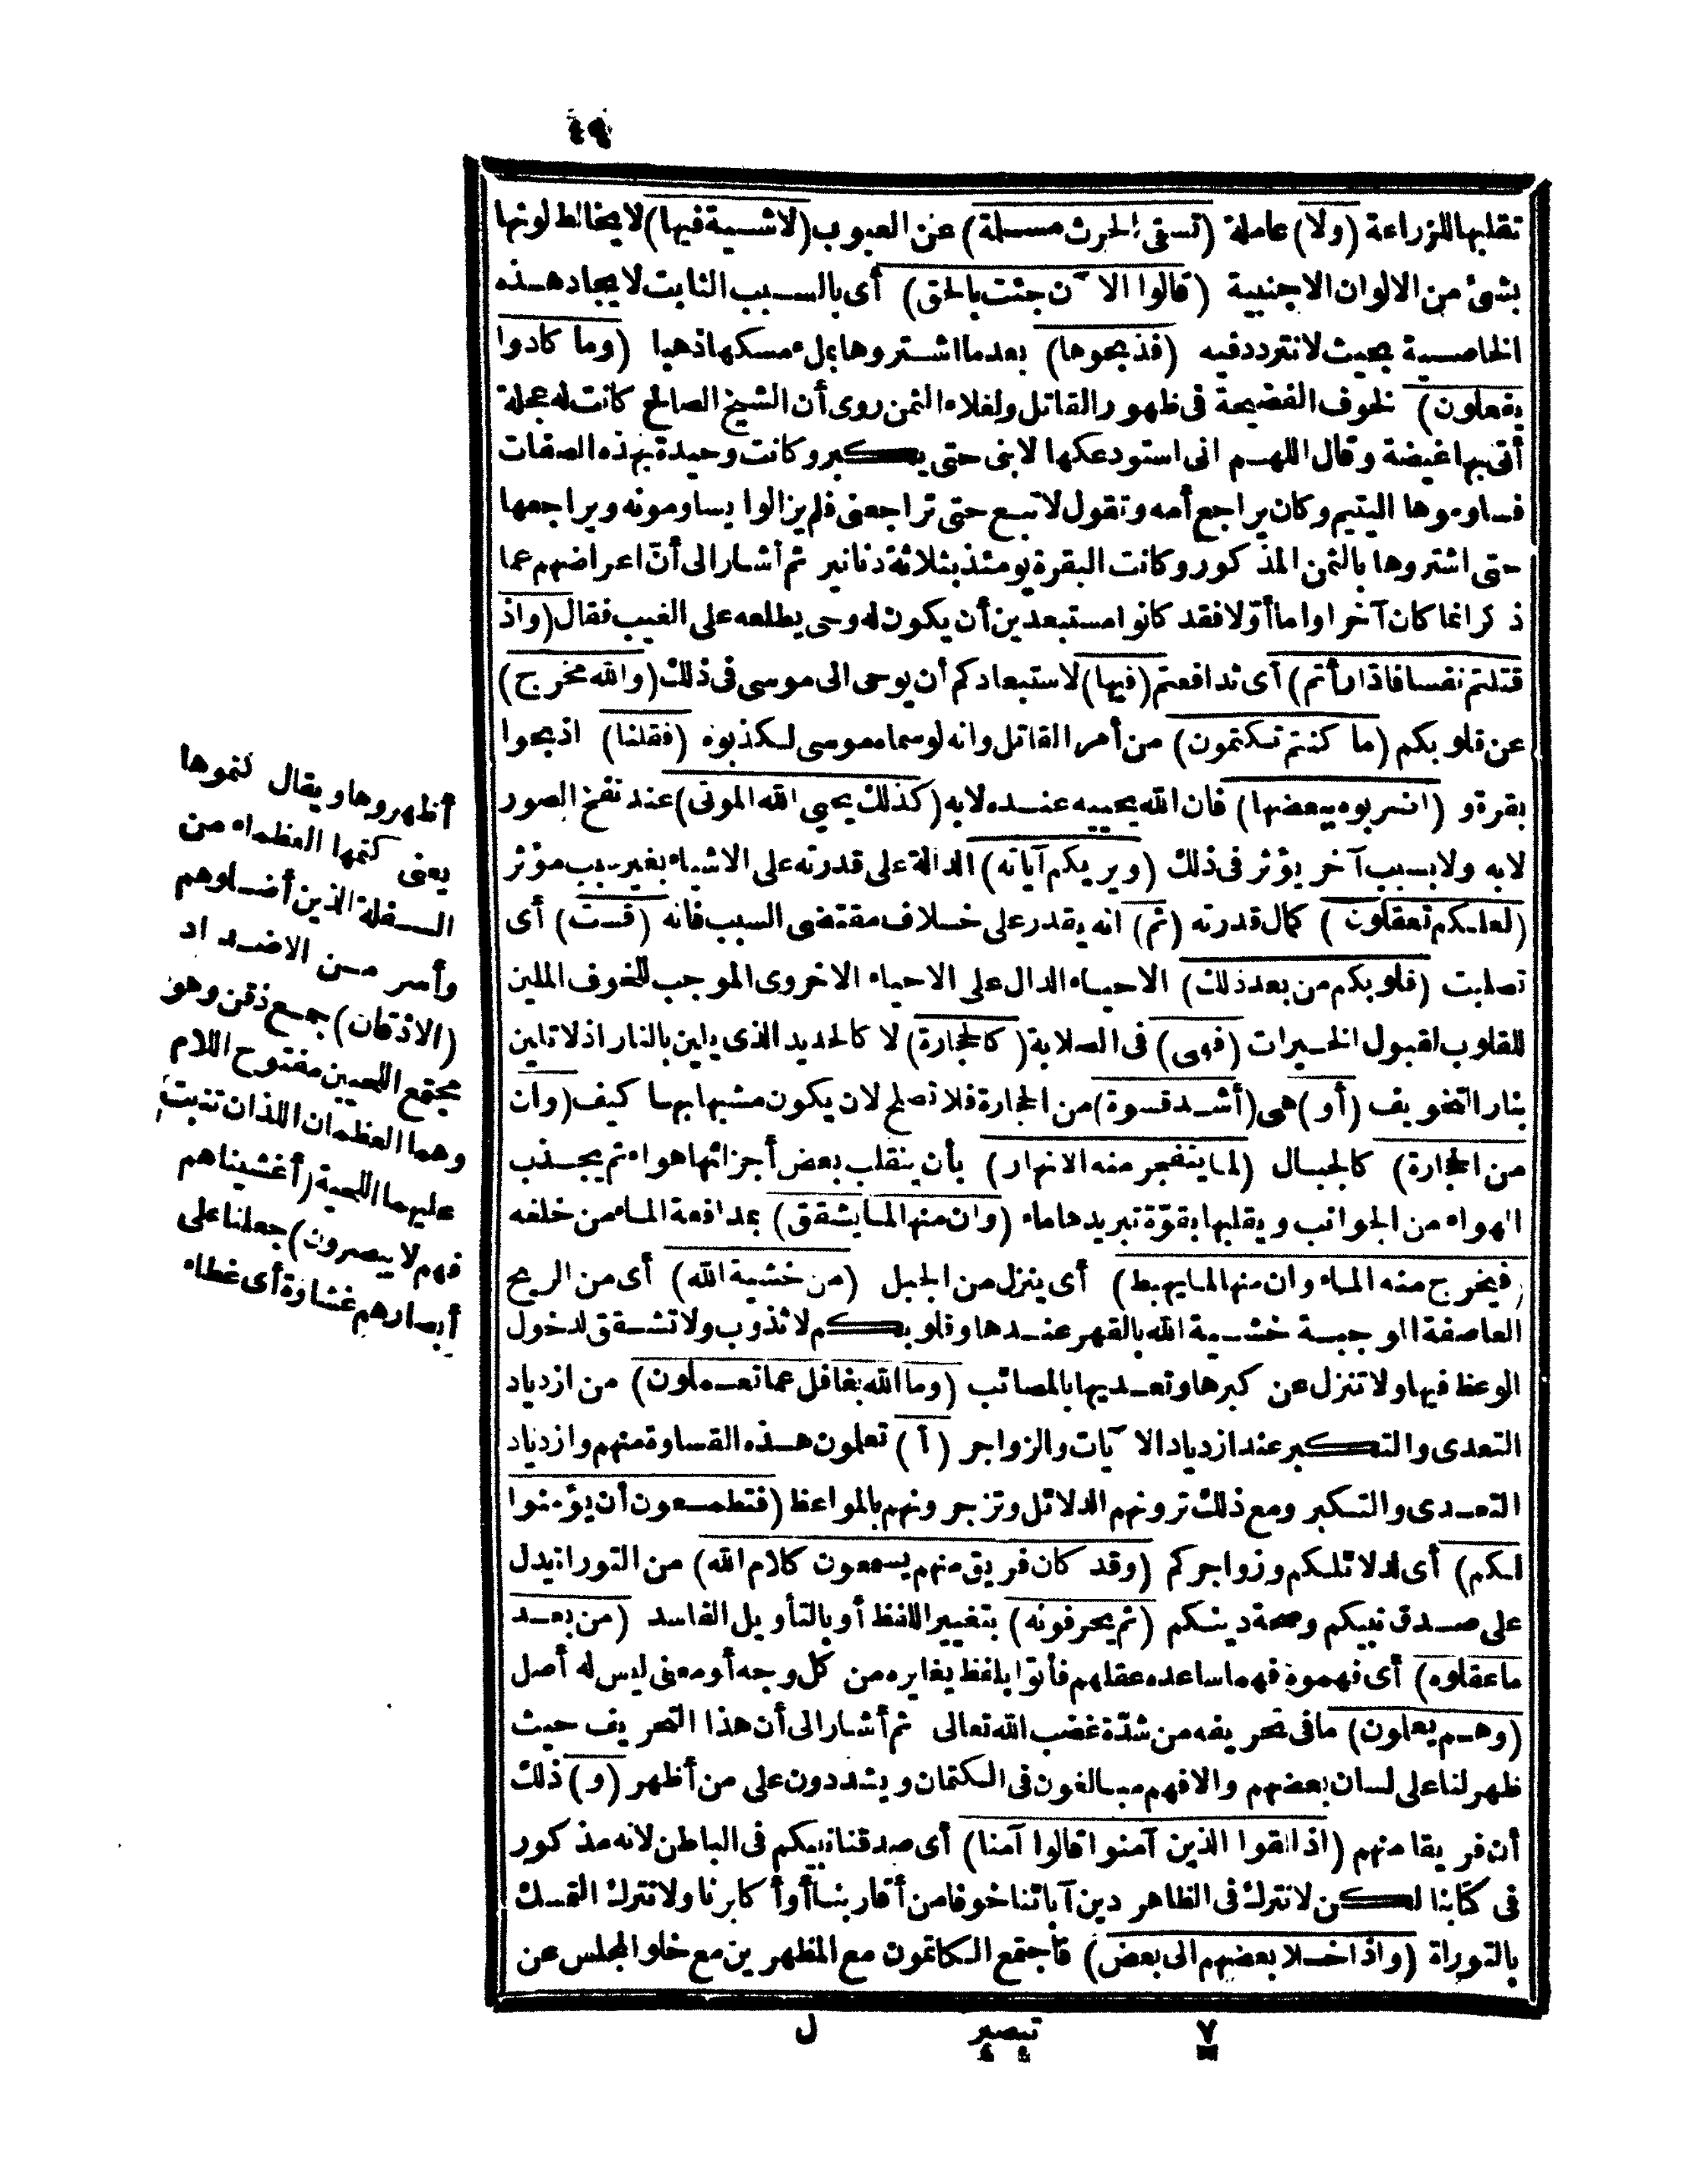 ٤٩
تقلبها للزراعة (ولا) عاملة (تسقى الحرث مسلمة) عن العيوب (لاشية فيها) لا يخالط لونها
بشئ من الالوان الاجنبية (قالوا الآن جئت بالحق) أى بالسبب الثابت لايجاد هذه
الخاصية بحيث لا نتردد فيه (فذبحوها) بعد ما اشتروها بملء مسكها ذهبا (وما كادوا
يفعلون) لخوف الفضيحة فى ظهور القاتل ولغلاء الثمن روى أن الشيخ الصالح كانت له عجلة
أتى بها غيضة وقال اللهم انى استودعكها لابنى حتى يكبر وكانت وحيدة بهذه الصفات
فساوموها اليتيم وكان يراجع أمه وتقول لا تبع حتى تراجعنى فلم يزالوا يساومونه ويراجعها
حتى اشتروها بالثمن المذكور وكانت البقرة يومئذ بثلاثة دنانير ثم أشار الى أنّ اعراضهم عما
ذكر انما كان آخرا واما أوّلا فقد كانوا مستبعدين أن يكون له وحى يطلعه على الغيب فقال (واذ
قتلتم نفسا فاذارأتم) أى تدافعتم (فيها) لاستبعادكم أن يوحى الى موسى فى ذلك (والله مخرج)
عن قلوبكم (ما كنتم تكتمون) من أمر القاتل وانه لو سماه موسى لكذبوه (فقلنا) اذبحوا
بقرة و (اضربوه ببعضها) فان الله يحييه عنده لابه (كذلك يحيى الله الموتى) عند نفخ الصور
لابه ولا بسبب آخر يؤثر فى ذلك (ويريكم آياته) الدالة على قدرته على الاشياء بغير سبب مؤثر
(لعلكم تعقلون) كمال قدرته (ثم) انه يقدر على خلاف مقتضى السبب فانه (قست) أى
تصلبت (قلوبكم من بعد ذلك) الاحياء الدال على الاحياء الاخروى الموجب للخوف الملين
للقلوب لقبول الخيرات (فهى) فى الصلابة (كالحجارة) لا كالحديد الذى يلين بالنار اذ لا تلين
بنار التخويف (أو) هى (أشد قسوة) من الحجارة فلا تصلح لان يكون مشبها بها كيف (وان
من الحجارة) كالجبال (لما يتفجر منه الانهار) بأن ينقلب بعض أجزائها هواء ثم يجذب
الهواء من الجوانب ويقلبها بقوّة تبريدها ماء (وان منها لما يشقق) بمدافعة الماء من خلفه
(فيخرج منه الماء وان منها لما يهبط) أى ينزل من الجبل (من خشية الله) أى من الريح
العاصفة الموجبة خشية الله بالقهر عندها وقلوبكم لا تذوب ولا تشقق لدخول
الوعظ فيها ولا تنزل عن كبرها وتعديها بالمصائب (وما الله بغافل عما تعملون) من ازدياد
التعدى والتكبر عند ازدياد الآيات والزواجر (أ) تعلمون هذه القساوة منهم وازدياد
التعدى والتكبر ومع ذلك ترونهم الدلائل وتزجرونهم بالمواعظ (فتطمعون أن يؤمنوا
لكم) أى لدلائلكم وزواجركم (وقد كان فريق منهم يسمعون كلام الله) من التوراة يدل
على صدق نبيكم وصحة دينكم (ثم يحرفونه) بتغيير اللفظ أو بالتأويل الفاسد (من بعد
ما عقلوه) أى فهموه فهما ساعده عقلهم فأتوا بلفظ يغايره من كل وجه أو معنى ليس له أصل
(وهم يعلمون) ما فى تحريفه من شدّة غضب الله تعالى ثم أشار الى أن هذا التحريف حيث
ظهر لنا على لسان بعضهم والا فهم مبالغون فى الكتمان ويشددون على من أظهر (و) ذلك
أن فريقا منهم (اذا لقوا الذين آمنوا قالوا آمنا) أى صدقنا نبيكم فى الباطن لانه مذكور
فى كتابنا لكن لا نترك فى الظاهر دين آبائنا خوفا من أقاربنا أو أكابرنا ولا نترك التمسك
بالتوراة (واذا خلا بعضهم الى بعض) فاجتمع الكاتمون مع المظهرين مع خلو المجلس عن
أظهروها ويقال كتموها
يعنى كتمها العظماء من
السفلة الذين أضلوهم
وأسر من الاضداد
(الاذقان) جمع ذقن وهو
مجتمع اللحيين مفتوح اللام
وهما العظمان اللذان تنبت
عليهما اللحية (أغشيناهم
فهم لا يبصرون) جعلنا على
أبصارهم غشاوة أى غطاء
٧ تبصير ل